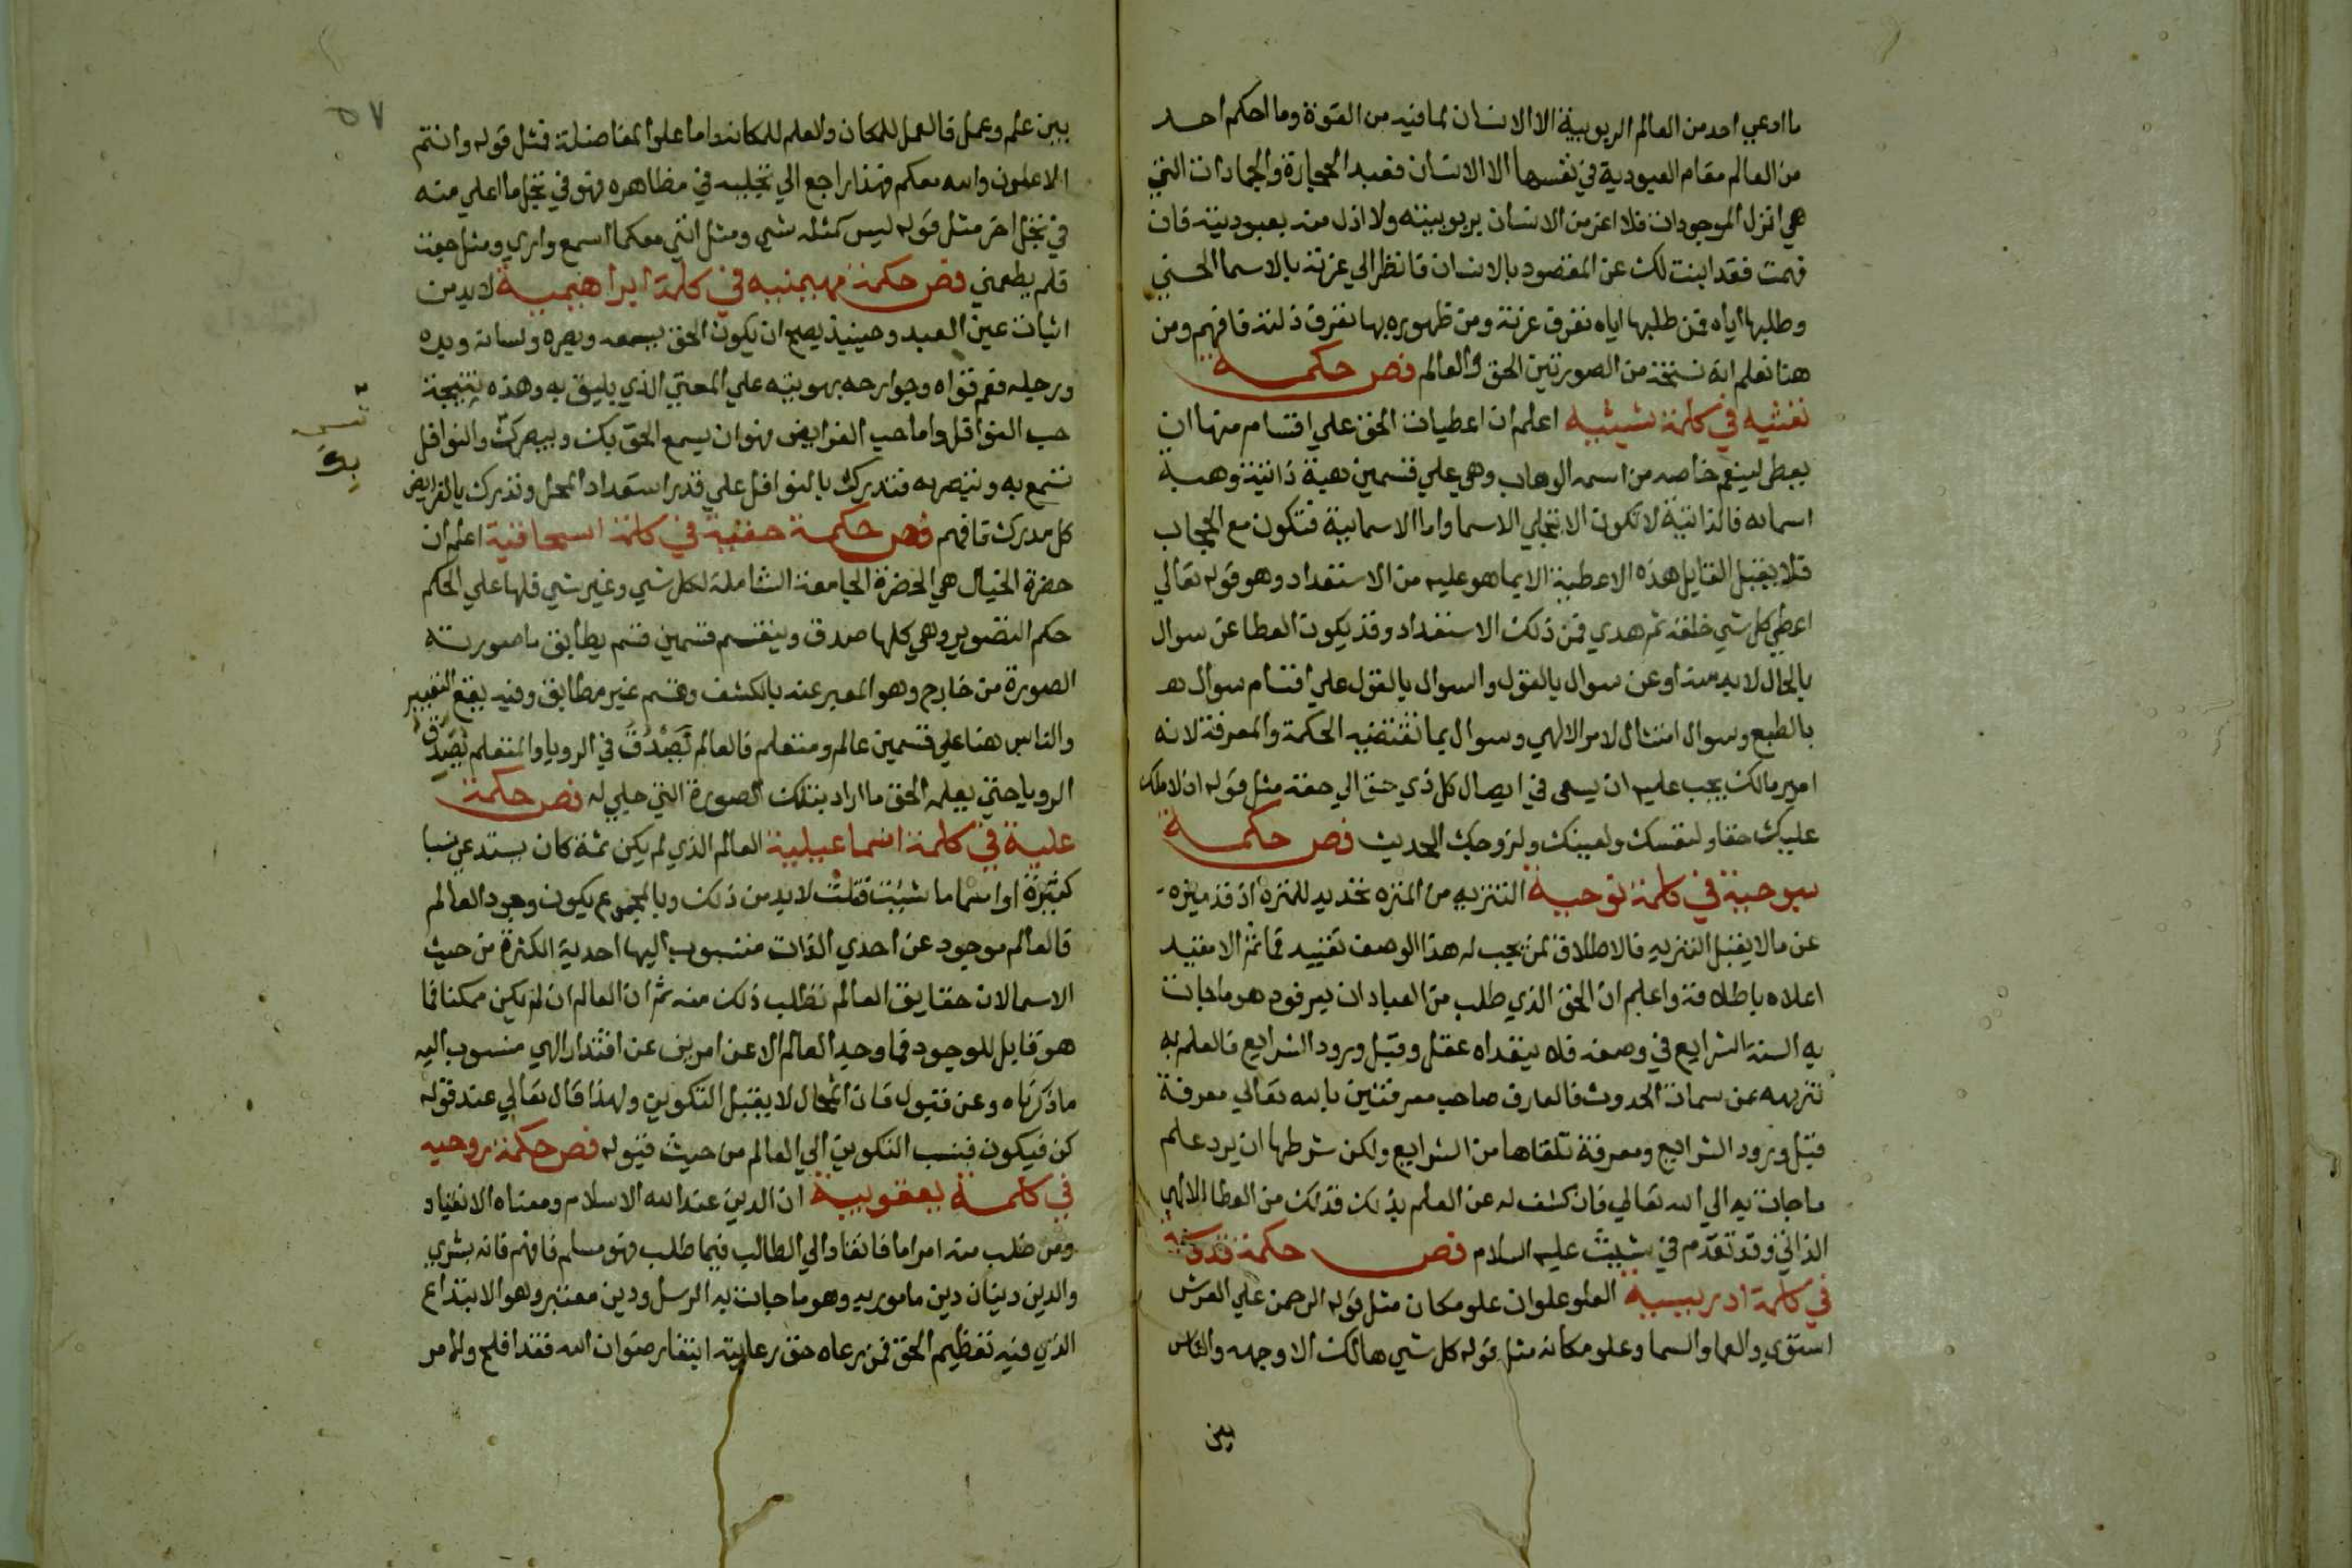 ما ادعي احد من العالم الربوبية الا الانسان لما فيه من القوة وما احكم احد
من العالم مقام العبودية في نفسها الا الانسان فعبد الحجارة والجمادات التي
هي انزل الموجودات فلا اعز من الانسان بربوبيته ولا اذل منه بعبوديته فان
فهمت فقد ابنت لك عن المقصود بالانسان فانظر الي عزته بالاسما الحسني
وطلبها اياه فمن طلبها اياه تعرف عزته ومن ظهوره بها تعرف ذلته فافهم ومن
هنا تعلم انه نسخة من الصورتين الحق والعالم فص حكمة
نفثيه في كلمة شيثيه اعلم ان اعطيات الحق علي اقسام منها ان
يعطي لينعم خاصه من اسمه الوهاب وهي علي قسمين هبة ذاتية وهبة
اسمائه فالذاتية لا تكون الا بتجلي الاسما واما الاسمائية فتكون مع الحجاب
فلا يقبل القابل هذه الاعطية الا بما هو عليه من الاستعداد وهو قوله تعالي
اعطي كل شي خلقه ثم هدي فمن ذلك الاستعداد وقد يكون العطا عن سوال
بالحال لابد منه او عن سوال بالقول والسوال بالقول علي اقسام سوال
بالطبع وسوال امتثال لامر الالهي وسوال بما تقتضيه الحكمة والمعرفة لانه
امير مالك يجب عليه ان يسعي في ايصال كل ذي حق الي حقه مثل قوله ان لاهلك
عليك حقا ولنفسك ولعينك ولزوجك الحديث فص حكمة
سبوحية في كلمة نوحية التنزيه من المنزه تحديد للمنزه اذ قد ميزه
عن مالا يقبل التنزيه فالاطلاق لمن يجب له هذا الوصف تقييد فما ثم الا مقيد
اعلاه باطلاقه واعلم ان الحق الذي طلب من العباد ان يعرفوه هو ما جات
به السنة الشرايع في وصفه فلا يتعداه عقل وقبل ورود الشرايع فالعلم به
تنزيهه عن سمات الحدوث فالعارف صاحب معرفتين بالله تعالي معرفة
قبل ورود الشرايع ومعرفة تلقاها من الشرايع ولكن شرطها ان يرد علم
ما جات به الي الله تعالي فان كشف له عن العلم بذلك فذلك من العطا الالهي
الذاتي وقد تقدم في شيث عليه السلام فص حكمة قدوسية
في كلمة ادريسية العلو علوان علو مكان مثل قوله الرحمن علي العرش
استوي والعما والسما وعلو مكانه مثل قوله كل شي هالك الا وجهه والناس
بين
٥٧
بين علم وعمل فالعمل للمكان والعلم للمكانه واما علو المفاضلة فمثل قوله وانتم
الاعلون والله معكم فهذا راجع الي تجليه في مظاهره فهو في تجل ما اعلي منه
في تجل اخر مثل قوله ليس كمثله شي ومثل انني معكما اسمع واري ومثل جعت
فلم يطعمني فص حكمة مهيمنيه في كلمة ابراهيمية لابد من
اثبات عين العبد وحينيذ يصح ان يكون الحق سمعه وبصره ولسانه ويده
ورجله فعم قواه وجوارحه بهويته علي المعني الذي يليق به وهذه نتيجة
حب النوافل واما حب الفرايض فهو ان يسمع الحق بك ويبصر بك والنوافل
تسمع به وتبصر به فتدرك بالنوافل علي قدر استعداد المحل وتدرك بالفرايض
كل مدرك فافهم فص حكمة حقية في كلمة اسحاقية اعلم ان
حضرة الخيال هي الحضرة الجامعة الشاملة لكل شي وغير شي فلها علي الحكم
حكم التصوير وهي كلها صدق وينقسم قسمين قسم يطابق ما صورته
الصورة من خارج وهو المعبر عنه بالكشف وقسم غير مطابق وفيه يقع التعبير
والناس هنا علي قسمين عالم ومتعلم فالعالم يصدق في الرويا والمتعلم يصدق
الرويا حتي يعلمه الحق ما اراد بتلك الصورة التي جلي له فص حكمة
علية في كلمة اسماعيلية العالم الذي لم يكن ثمة كان يستدعي نسبا
كثيرة او اسما ما شيت فقلت لابد من ذلك وبالمجموع يكون وجود العالم
فالعالم موجود عن احدي الذات منسوب اليها احدية الكثرة من حيث
الاسما لان حقايق العالم تطلب ذلك منه ثم ان العالم ان لم يكن ممكنا فما
هو قابل للوجود فما وجد العالم الا عن امرين عن اقتدار الهي منسوب اليه
ما ذكرناه وعن قبول فان المحال لا يقبل التكوين ولهذا قال تعالي عند قوله
كن فيكون فنسب التكوين الي العالم من حيث قبوله فص حكمة روحيه
في كلمة يعقوبية ان الدين عند الله الاسلام ومعناه الانقياد
ومن طلب منه امرا ما فانقاد الي الطالب فيما طلب فهو مسلم فافهم فانه يسري
والدين دينان دين مامور به وهو ما جات به الرسل ودين معتبر وهو الابتداع
الذي فيه تعظيم الحق فمن رعاه حق رعايته ابتغا رضوان الله فقد افلح والامر